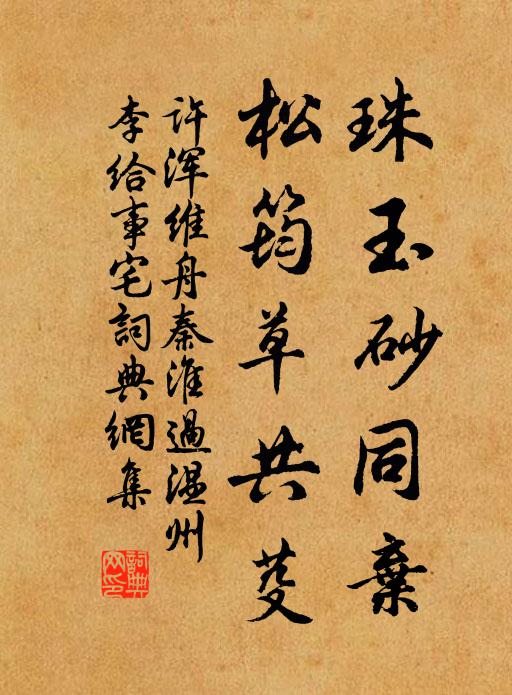 珠玉砂同棄
松筠草共芟
许浑维舟秦淮過温州
李给事宅詞典網集
詞典网印